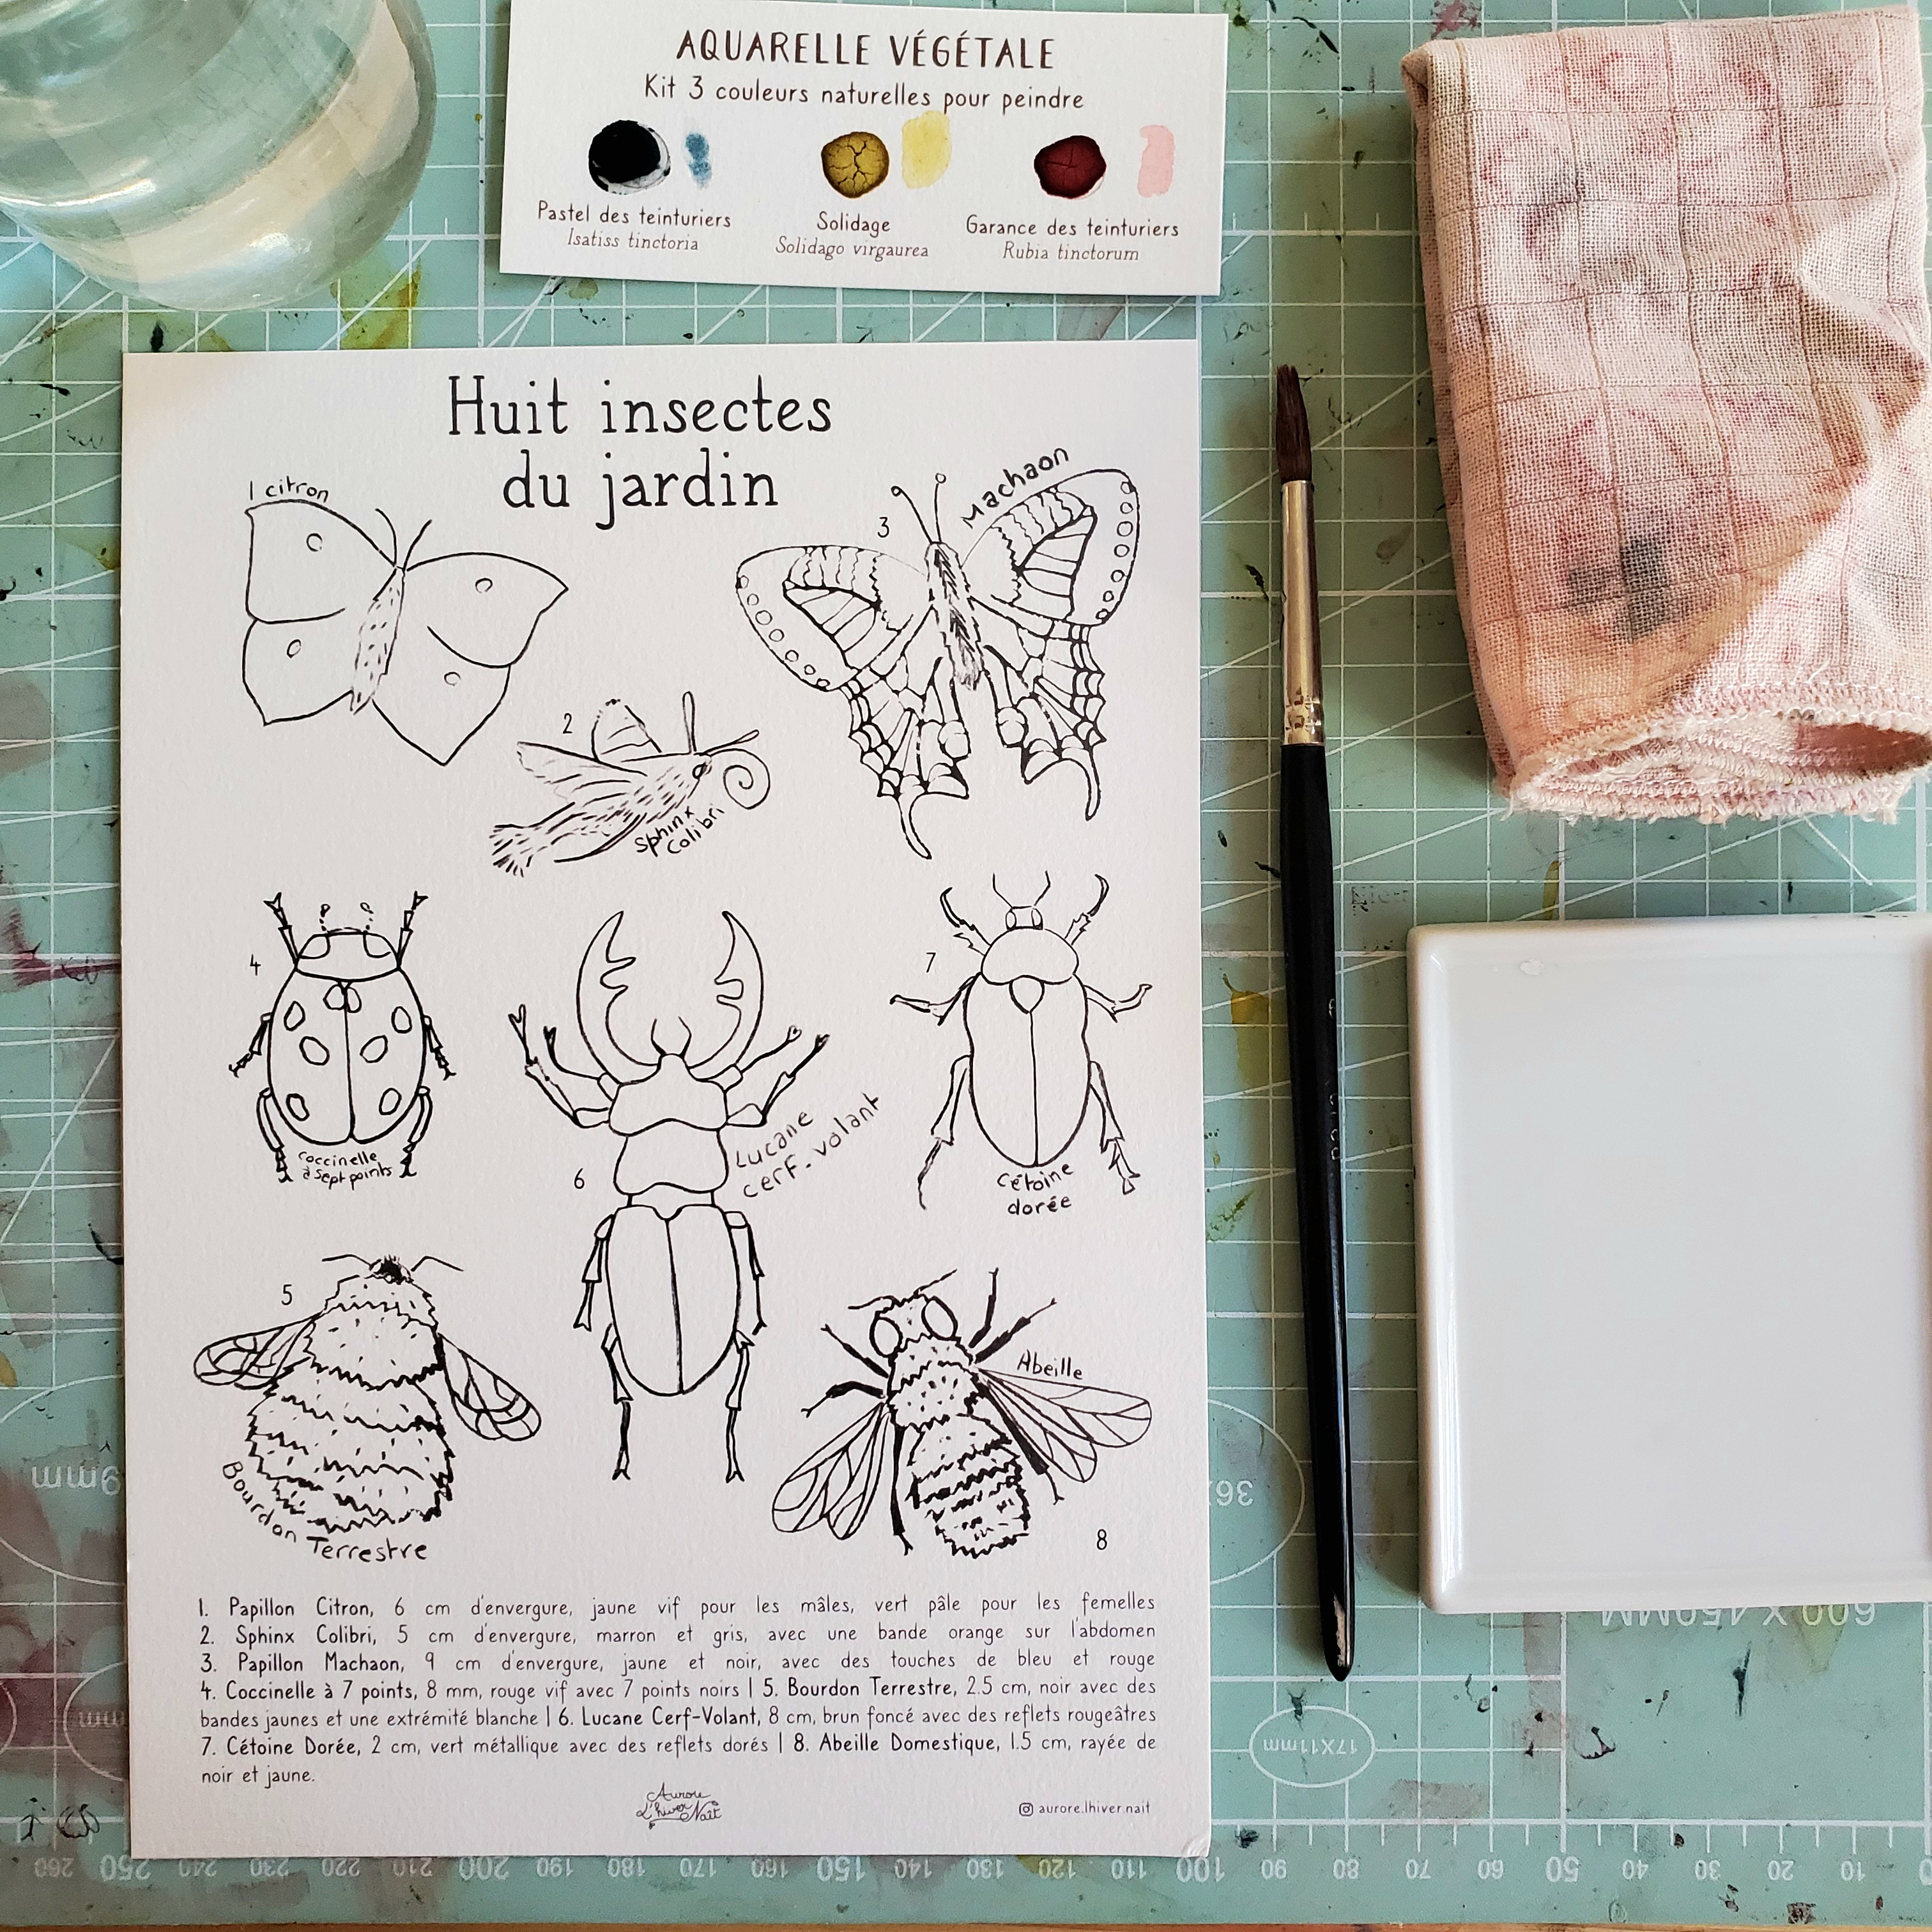 AQUARELLE VÉGÉTALE
Kit 3 couleurs naturelles pour peindre
Pastel des teinturiers
Isatiss tinctoria
Solidage
Solidago virgaurea
Garance des teinturiers
Rubia tinctorum
Huit insectes
du jardin
1 citron
3
Machaon
2
Sphinx
Colibri
4
Coccinelle
à sept points
6
Lucane
cerf-volant
7
Cétoine
dorée
5
Bourdon Terrestre
Abeille
8
1. Papillon Citron, 6 cm d'envergure, jaune vif pour les mâles, vert pâle pour les femelles
2. Sphinx Colibri, 5 cm d'envergure, marron et gris, avec une bande orange sur l'abdomen
3. Papillon Machaon, 9 cm d'envergure, jaune et noir, avec des touches de bleu et rouge
4. Coccinelle à 7 points, 8 mm, rouge vif avec 7 points noirs | 5. Bourdon Terrestre, 2.5 cm, noir avec des
bandes jaunes et une extrémité blanche | 6. Lucane Cerf-Volant, 8 cm, brun foncé avec des reflets rougeâtres
7. Cétoine Dorée, 2 cm, vert métallique avec des reflets dorés | 8. Abeille Domestique, 1.5 cm, rayée de
noir et jaune.
Aurore
L'hiver Naît
aurore.lhiver.nait
600 X 450MM
17X11mm
260 250 240 230 220 210 200 190 180 170 160 150 140 130 120 110 100 90 80 70 60 50 40 30 20 10